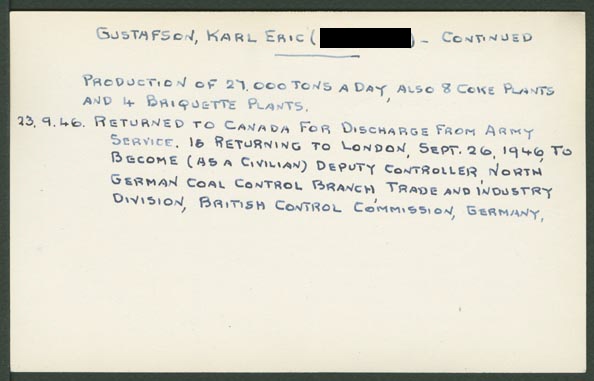 GUSTAFSON, KARL ERIC ( ) - CONTINUED
PRODUCTION OF 27,000 TONS A DAY, ALSO 8 COKE PLANTS
AND 4 BRIQUETTE PLANTS.
23.9.46. RETURNED TO CANADA FOR DISCHARGE FROM ARMY
SERVICE. IS RETURNING TO LONDON, SEPT. 26, 1946, TO
BECOME (AS A CIVILIAN) DEPUTY CONTROLLER, NORTH
GERMAN COAL CONTROL BRANCH, TRADE AND INDUSTRY
DIVISION, BRITISH CONTROL COMMISSION, GERMANY.